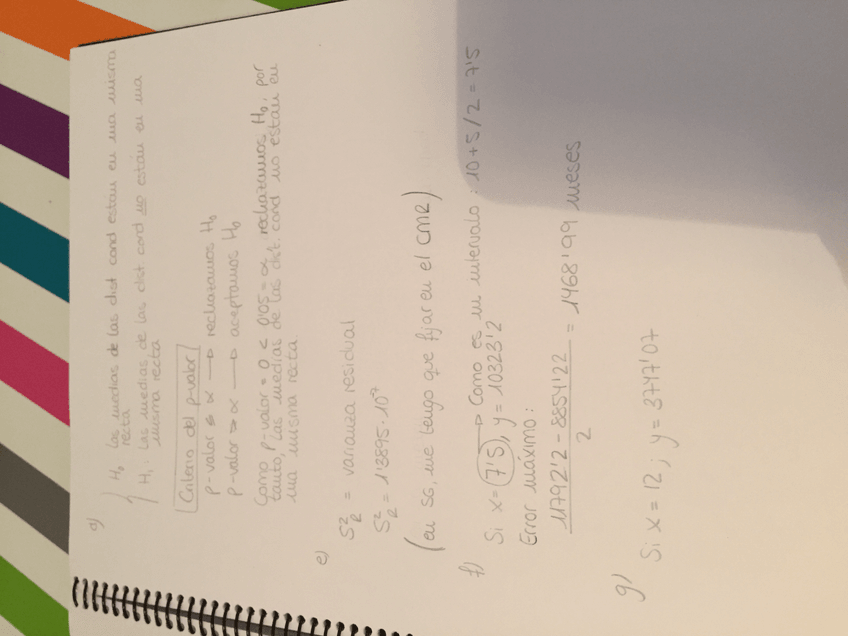 d)
H0 Las medias de las dist cond estan en una misma
recta
H1: Las medias de las dist cond no están en una
misma recta
Criterio del p-valor
p-valor ≤ α → rechazamos H0
p-valor > α → aceptamos H0
Como p-valor = 0 < 0'05 = α, rechazamos H0, por
tanto, las medias de las dist. cond no están en
una misma recta
e)
S²R = varianza residual
S²R = 1'3895·10⁻⁷
(en SG, me tengo que fijar en el CMR)
f)
Si x = 7'5, y = 10323'2 → Como es un intervalo: 10+5/2 = 7'5
Error máximo:
11792'2 - 8854'22 / 2 = 1468'99 meses
g)
Si x = 12; y = 3747'07